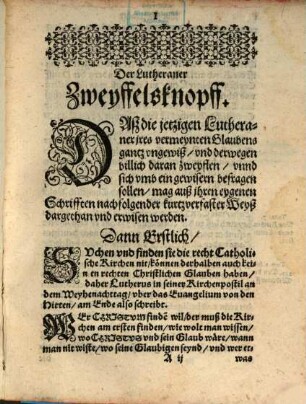 1
Der Lutheraner
Zweyffelsknopff.
DAsz die jetzigen Luthera-
ner jres vermeynten Glaubens
gantz vngewiß / vnd derwegen
billich daran zweyflen / vnnd
sich vmb ein gewisern befragen
sollen / mag auß jhren eygenen
Schrifften nachfolgender kurtzverfaster Weyß
dargethan vnd erwisen werden.
Dann Erstlich /
SVchen vnd finden sie die recht Catholi-
sche Kirchen nit / könen derhalben auch kei-
nen rechten Christlichen Glauben haben /
daher Lutherus in seiner Kirchenpostil an
dem Weyhenachttag / vber das Euangelium von den
Hirten / am Ende also schreibt.
WEr CHRISTVM findē wil / der muß die Kir-
chen am ersten finden / wie wolt man wissen /
wo CHRISTVS vnd sein Glaub wäre / wann
man nit wiste / wo seine Glaubigen seynd / vnd wer et-
A ij was